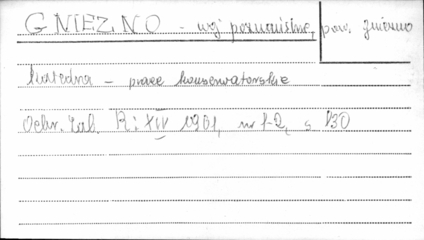 GNIEZNO - woj. poznańskie, pow. gniezno
katedra - prace konserwatorskie
Ochr. Zab. R: XIV 1961, nr 1-2, s 130